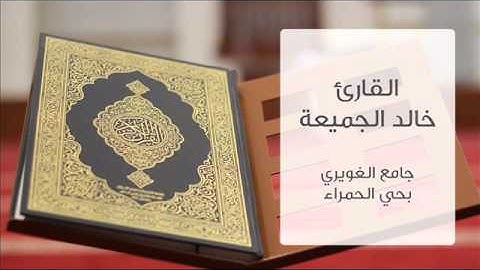 القارئ
خالد الجميعة
جامع الغويري
بحي الحمراء